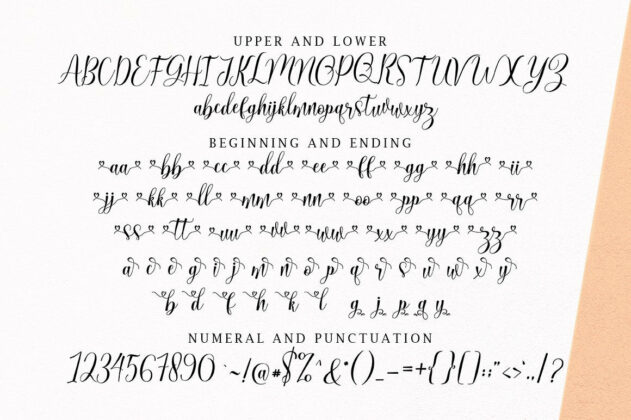 UPPER AND LOWER
ABCDEFGHIJKLMNOPQRSTUVWXYZ
abcdefghijklmnopqrstuvwxyz
BEGINNING AND ENDING
aa bb cc dd ee ff gg hh ii
jj kk ll mm nn oo pp qq rr
ss tt uu vv ww xx yy zz
a c g i j m n o p q r s u w x y
b d f h k l g j p q y
NUMERAL AND PUNCTUATION
1234567890 ~!@#$%^&*()_-=+{}[]:;"<>'.,/?